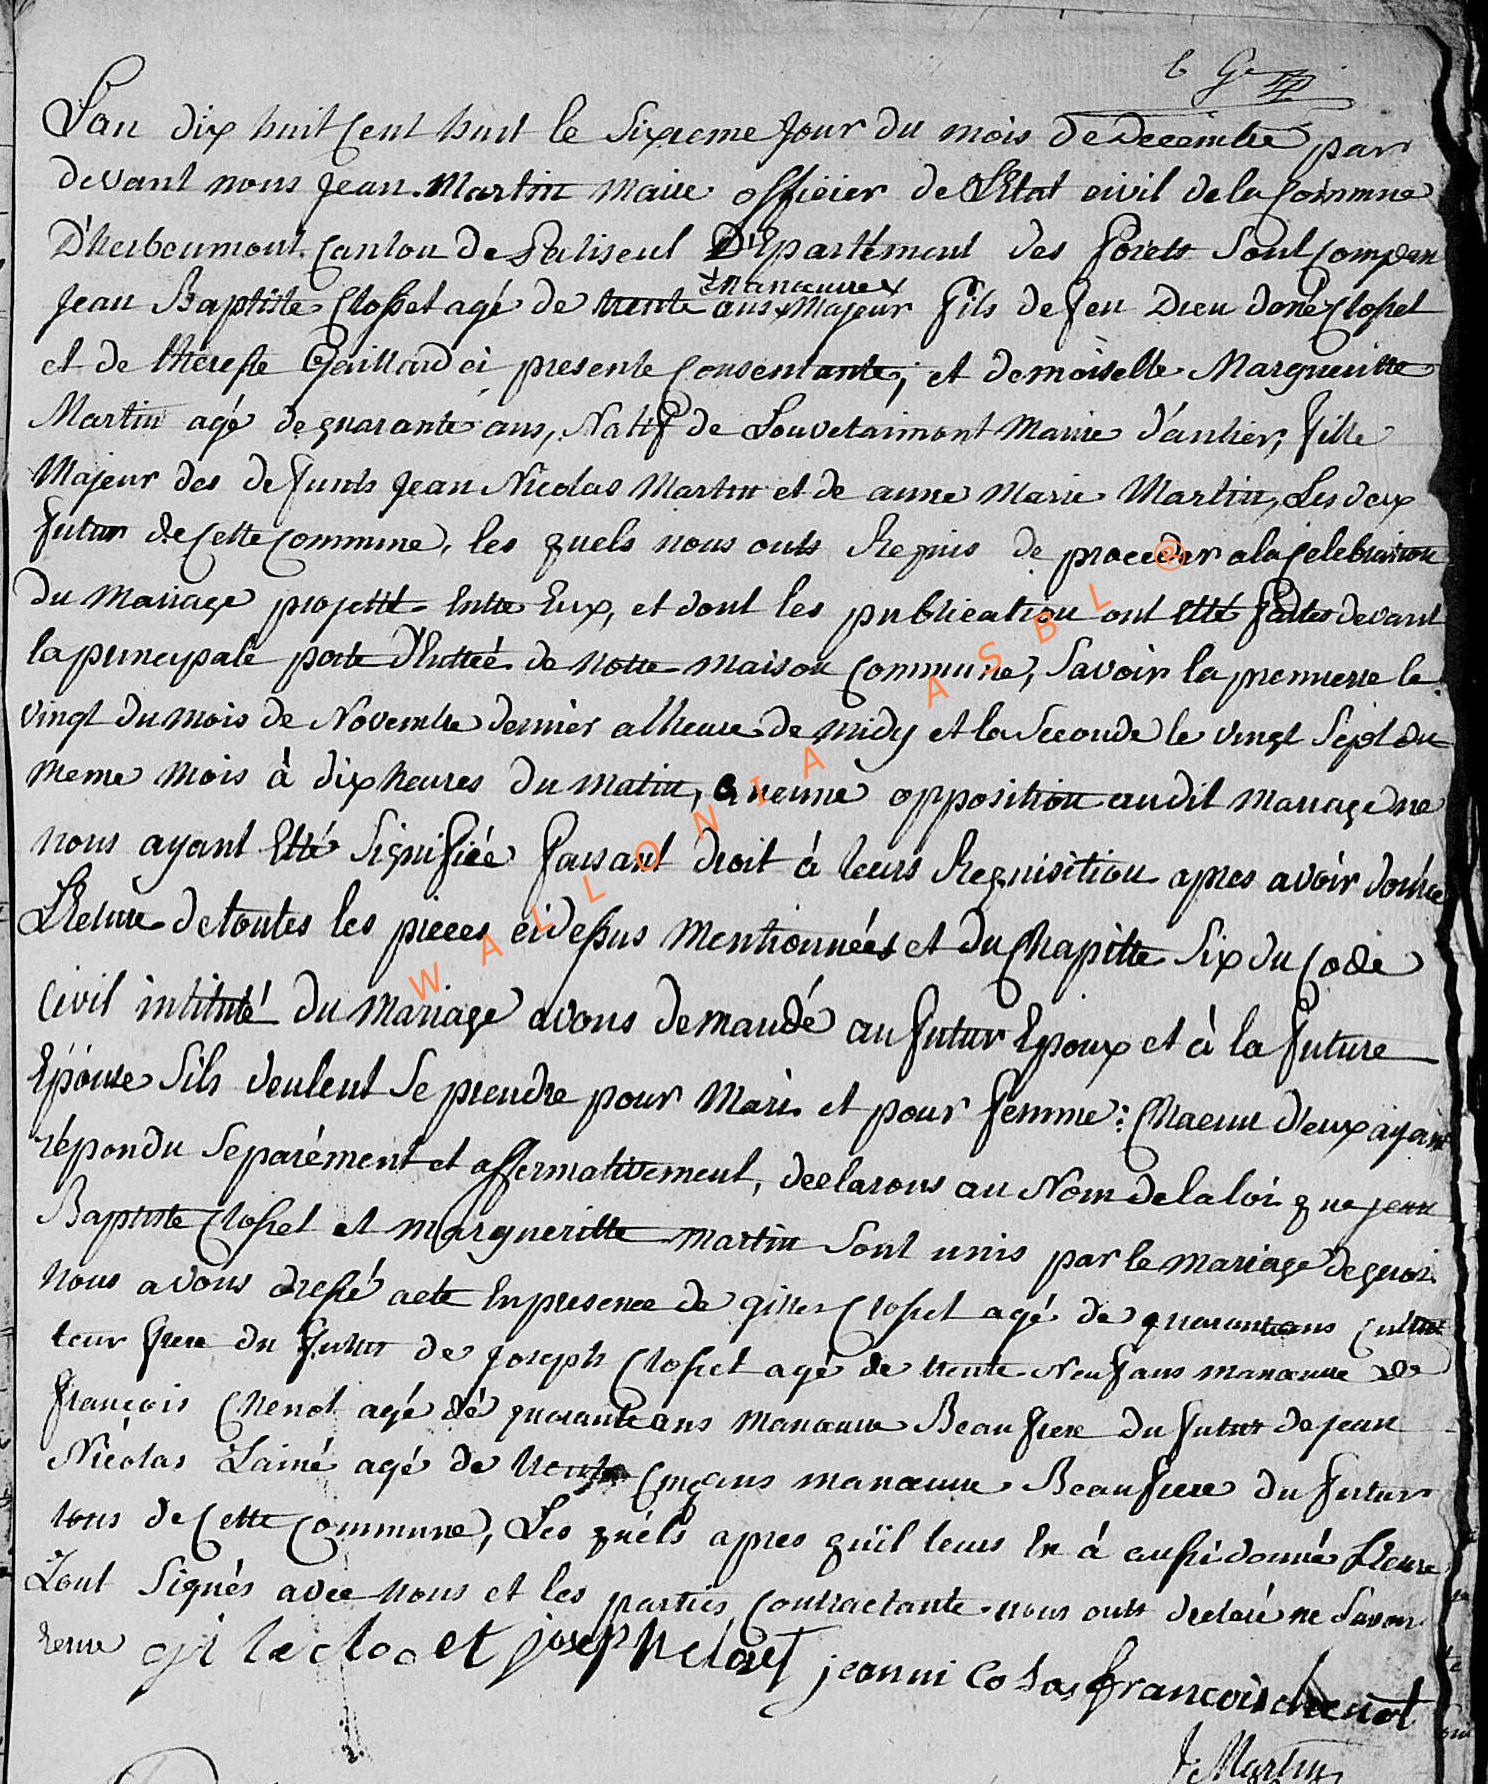 L'an dix huit Cent huit le Sixieme Jour du mois de decembre par
devant nous Jean Martin Maire officier de L'Etat civil de la Commune
D'herbeumont Canton de Paliseul Departement des forets Sont Comparu
manœuvre
Jean Baptiste Closset agé de trente ans Majeur fils de feu Dieu doné Closset
et de therese Gaillard ci presente Consentante; et demoiselle Margueritte
Martin agé de quarante ans, Natif de Louvetaimont Mairie d'anlier, fille
Majeur des defunts Jean Nicolas Martin et de anne Marie Martin, Les deux
futur de Cette Commune, les quels nous onts Requis de proceder a la Celebration
du Mariage projetté Entre Eux, et dont les publication ont Etté faites devant
la principale porte d'Entreé de Notre maison Commune, Savoir la premierre le
vingt du mois de Novembre dernier a lheure de midy et la Seconde le vingt Sept du
meme mois à dix heures du matin, aucune opposition audit mariage ne
nous ayant Etté Signifiée faisant droit à leurs Requisition apres avoir donné
Lecture de toutes les pieces cidessus Mentionnées et du Chapitre Six du Code
Civil intitulé du Mariage avons demandé au futur Epoux et à la future
Epouse Sils veulent Se prendre pour Mari et pour femme: Chacun d'eux ayant
répondu Separément et affermativement, declarons au Nom de la loi que jean
Baptiste Closset et Margueritte Martin Sont unis par le Mariage de quoi
Nous avons dressé acte En presence de gilles Closset agé de quarante ans Cultiva
teur frere du futur de Joseph Closset agé de trente Neuf ans manœuvre de
françois Chenot agé de quarante ans Manœuvre Beau frere du futur de jean
Nicolas Lainé agé de trente Cinq ans manœuvre Beau frere du futur
tous de Cette Commune, Les quéls apres qu'il leurs En á aussi donné Lecture
L'ont Signés avec Nous et les parties Contractante nous onts declaré ne Savoir
gile closet joseph closet jeannicolas françois chenot
J. Martin
WALLONIA ASBL @